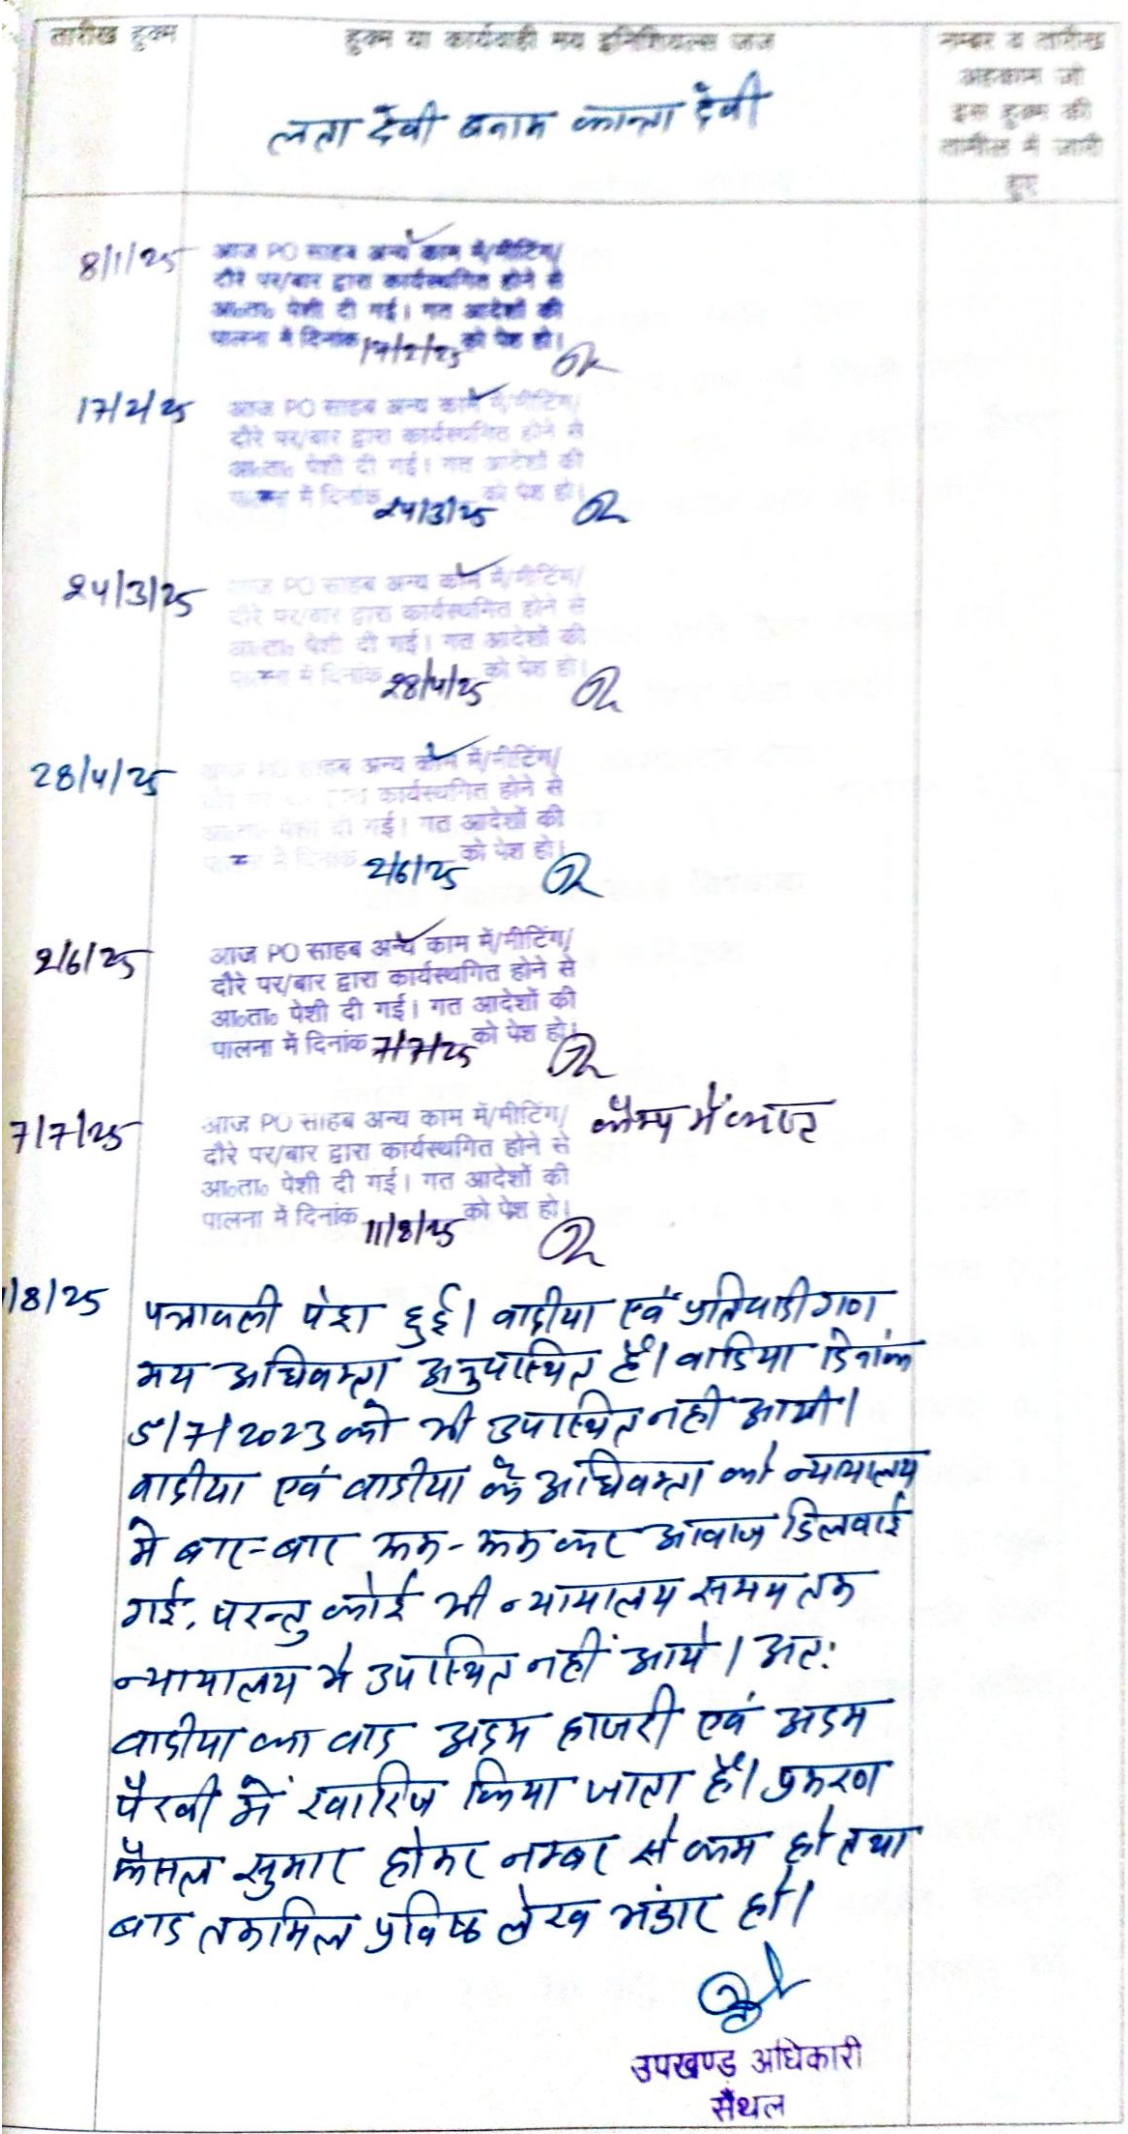 तारीख हुक्म
हुक्म या कार्यवाही मय इनिशियल्स जज
नम्बर व तारीख
अहकाम जो
इस हुक्म की
तामील में जारी
हुए
लता देवी बनाम कान्ता देवी
8/1/25
आज PO साहब अन्य काम में/मीटिंग/
दौरे पर/बार द्वारा कार्यस्थगित होने से
आ०ता० पेशी दी गई। गत आदेशों की
पालना में दिनांक 17/2/25 को पेश हो।
17/2/25
आज PO साहब अन्य काम में/मीटिंग/
दौरे पर/बार द्वारा कार्यस्थगित होने से
आ०ता० पेशी दी गई। गत आदेशों की
पालना में दिनांक 24/3/25 को पेश हो।
24/3/25
आज PO साहब अन्य काम में/मीटिंग/
दौरे पर/बार द्वारा कार्यस्थगित होने से
आ०ता० पेशी दी गई। गत आदेशों की
पालना में दिनांक 28/4/25 को पेश हो।
28/4/25
आज PO साहब अन्य काम में/मीटिंग/
दौरे पर/बार द्वारा कार्यस्थगित होने से
आ०ता० पेशी दी गई। गत आदेशों की
पालना में दिनांक 2/6/25 को पेश हो।
2/6/25
आज PO साहब अन्य काम में/मीटिंग/
दौरे पर/बार द्वारा कार्यस्थगित होने से
आ०ता० पेशी दी गई। गत आदेशों की
पालना में दिनांक 7/7/25 को पेश हो।
7/7/25
आज PO साहब अन्य काम में/मीटिंग/ कैम्प में व्यस्त
दौरे पर/बार द्वारा कार्यस्थगित होने से
आ०ता० पेशी दी गई। गत आदेशों की
पालना में दिनांक 11/8/25 को पेश हो।
1/8/25
पत्रावली पेश हुई। वादीया एवं प्रतिवादीगण
मय अधिवक्ता अनुपस्थित हैं। वादिया दिनांक
5/7/2023 को भी उपस्थित नही आयी।
वादीया एवं वादीया के अधिवक्ता को न्यायालय
मे बार-बार रूक-रूक कर आवाज दिलवाई
गई, परन्तु कोई भी न्यायालय समय तक
न्यायालय मे उपस्थित नहीं आये। अतः
वादीया का वाद अदम हाजरी एवं अदम
पैरवी में खारिज किया जाता है। प्रकरण
फैसल सुमार होकर नम्बर से कम हो तथा
बाद तकमिल प्रविष्ठ लेख भंडार हो।
उपखण्ड अधिकारी
सैंथल